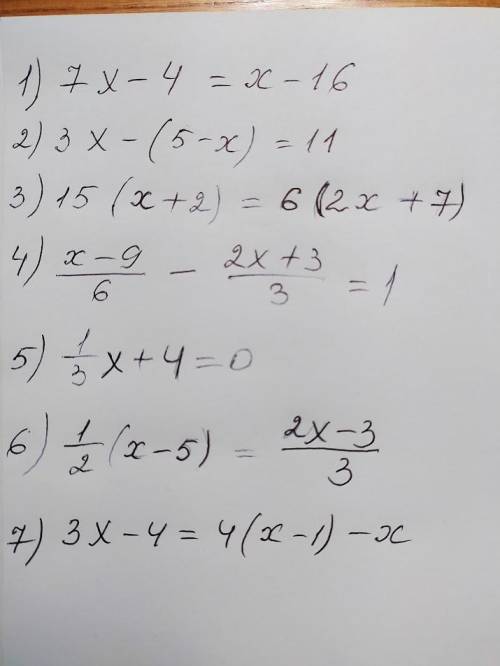 1) 7x - 4 = x - 16
2) 3x - (5 - x) = 11
3) 15 (x + 2) = 6 (2x + 7)
4) \frac{x - 9}{6} - \frac{2x + 3}{3} = 1
5) \frac{1}{3} x + 4 = 0
6) \frac{1}{2} (x - 5) = \frac{2x - 3}{3}
7) 3x - 4 = 4(x - 1) - x